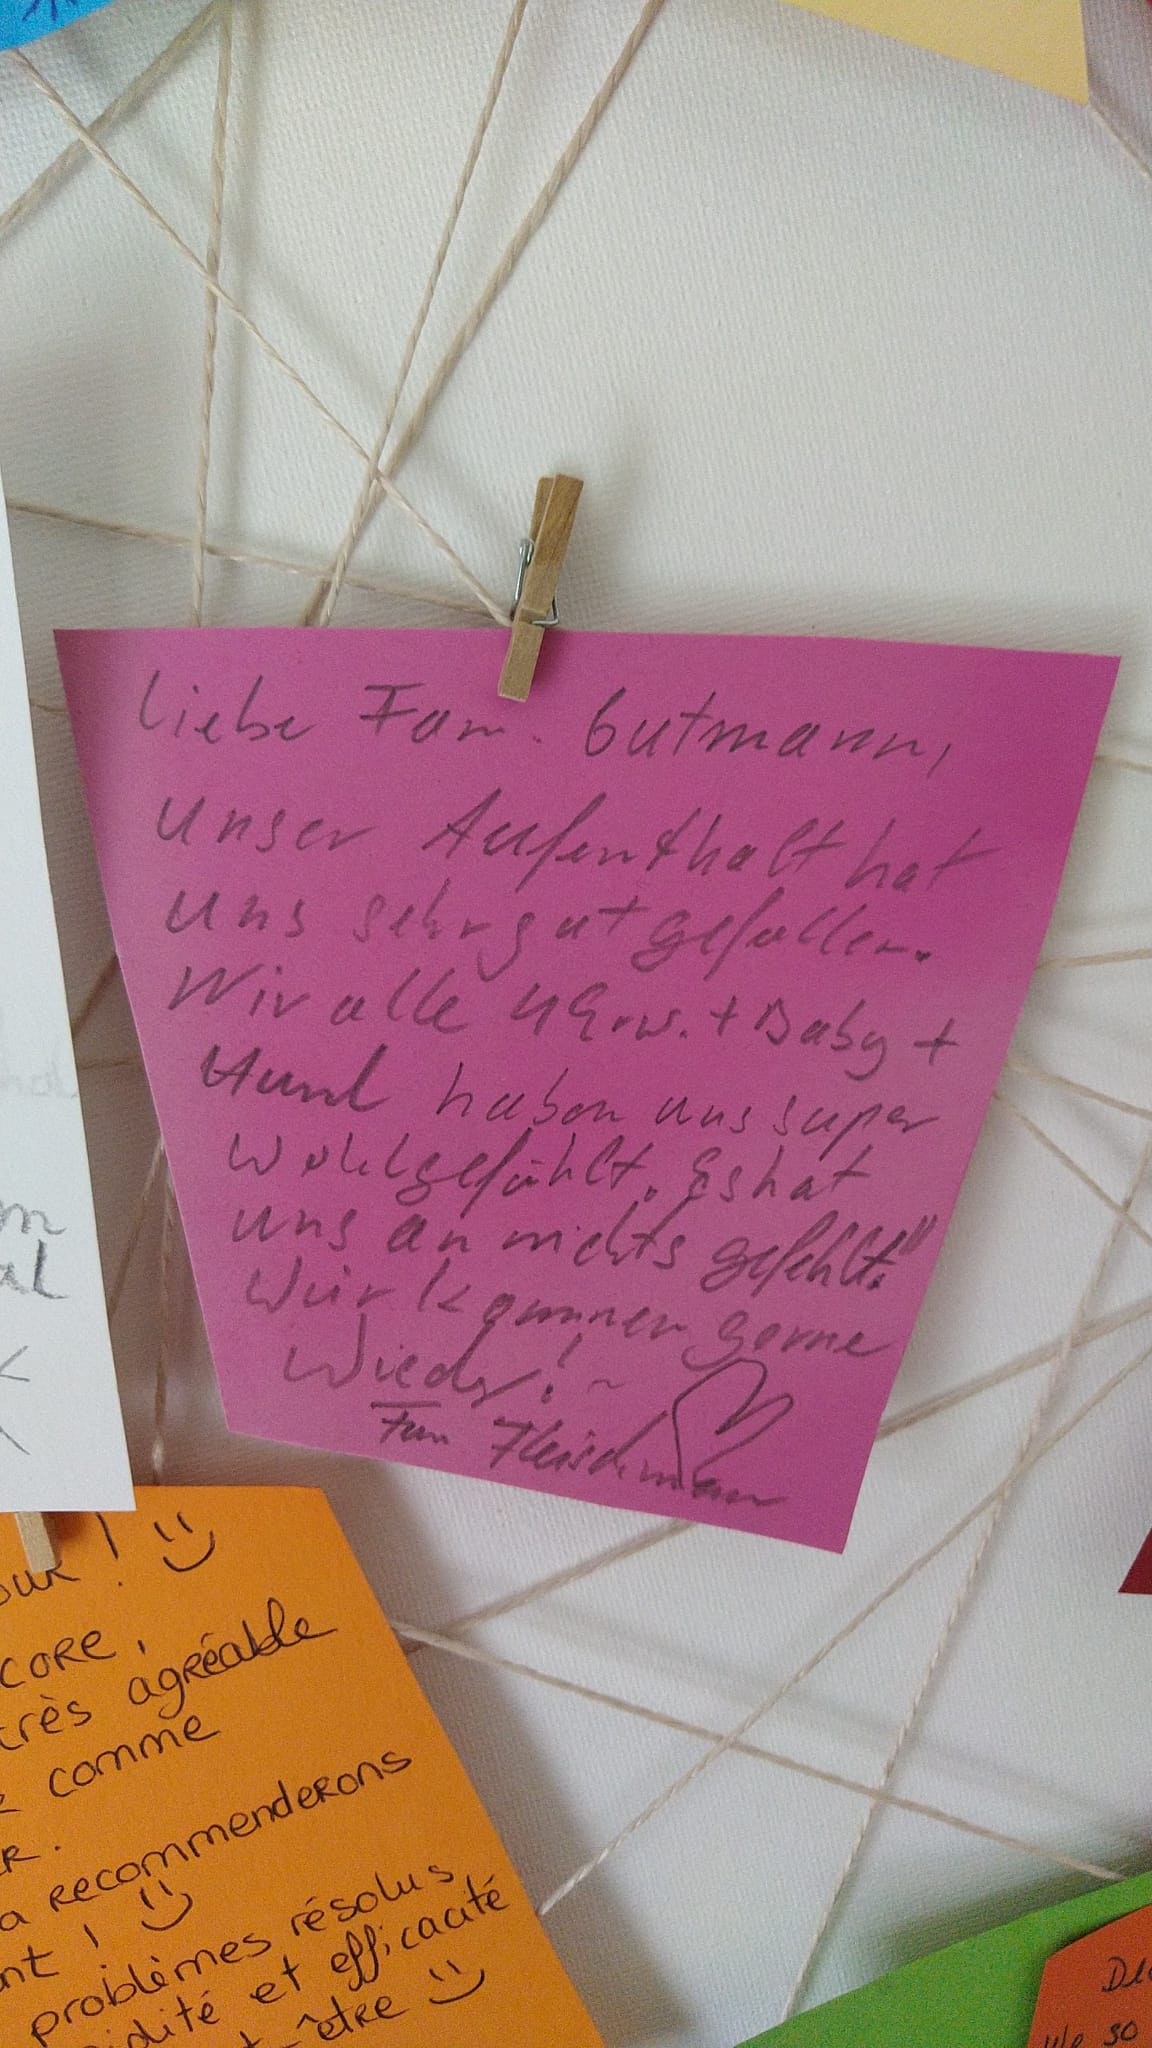 Liebe Fam. Gutmann,
Unser Aufenthalt hat
uns sehr gut gefallen.
Wir alle 4 Erw. + Baby +
Hund haben uns super
Wohlgefühlt. Es hat
uns an nichts gefehlt."
Wir kommen gerne
Wieder! ~
Fam Fleischmann
m
al
our !
CORE,
très agréable
comme
R.
a RECOMMENDERONS
nt !
problèmes résolus
idité et efficacité
t-être
We so